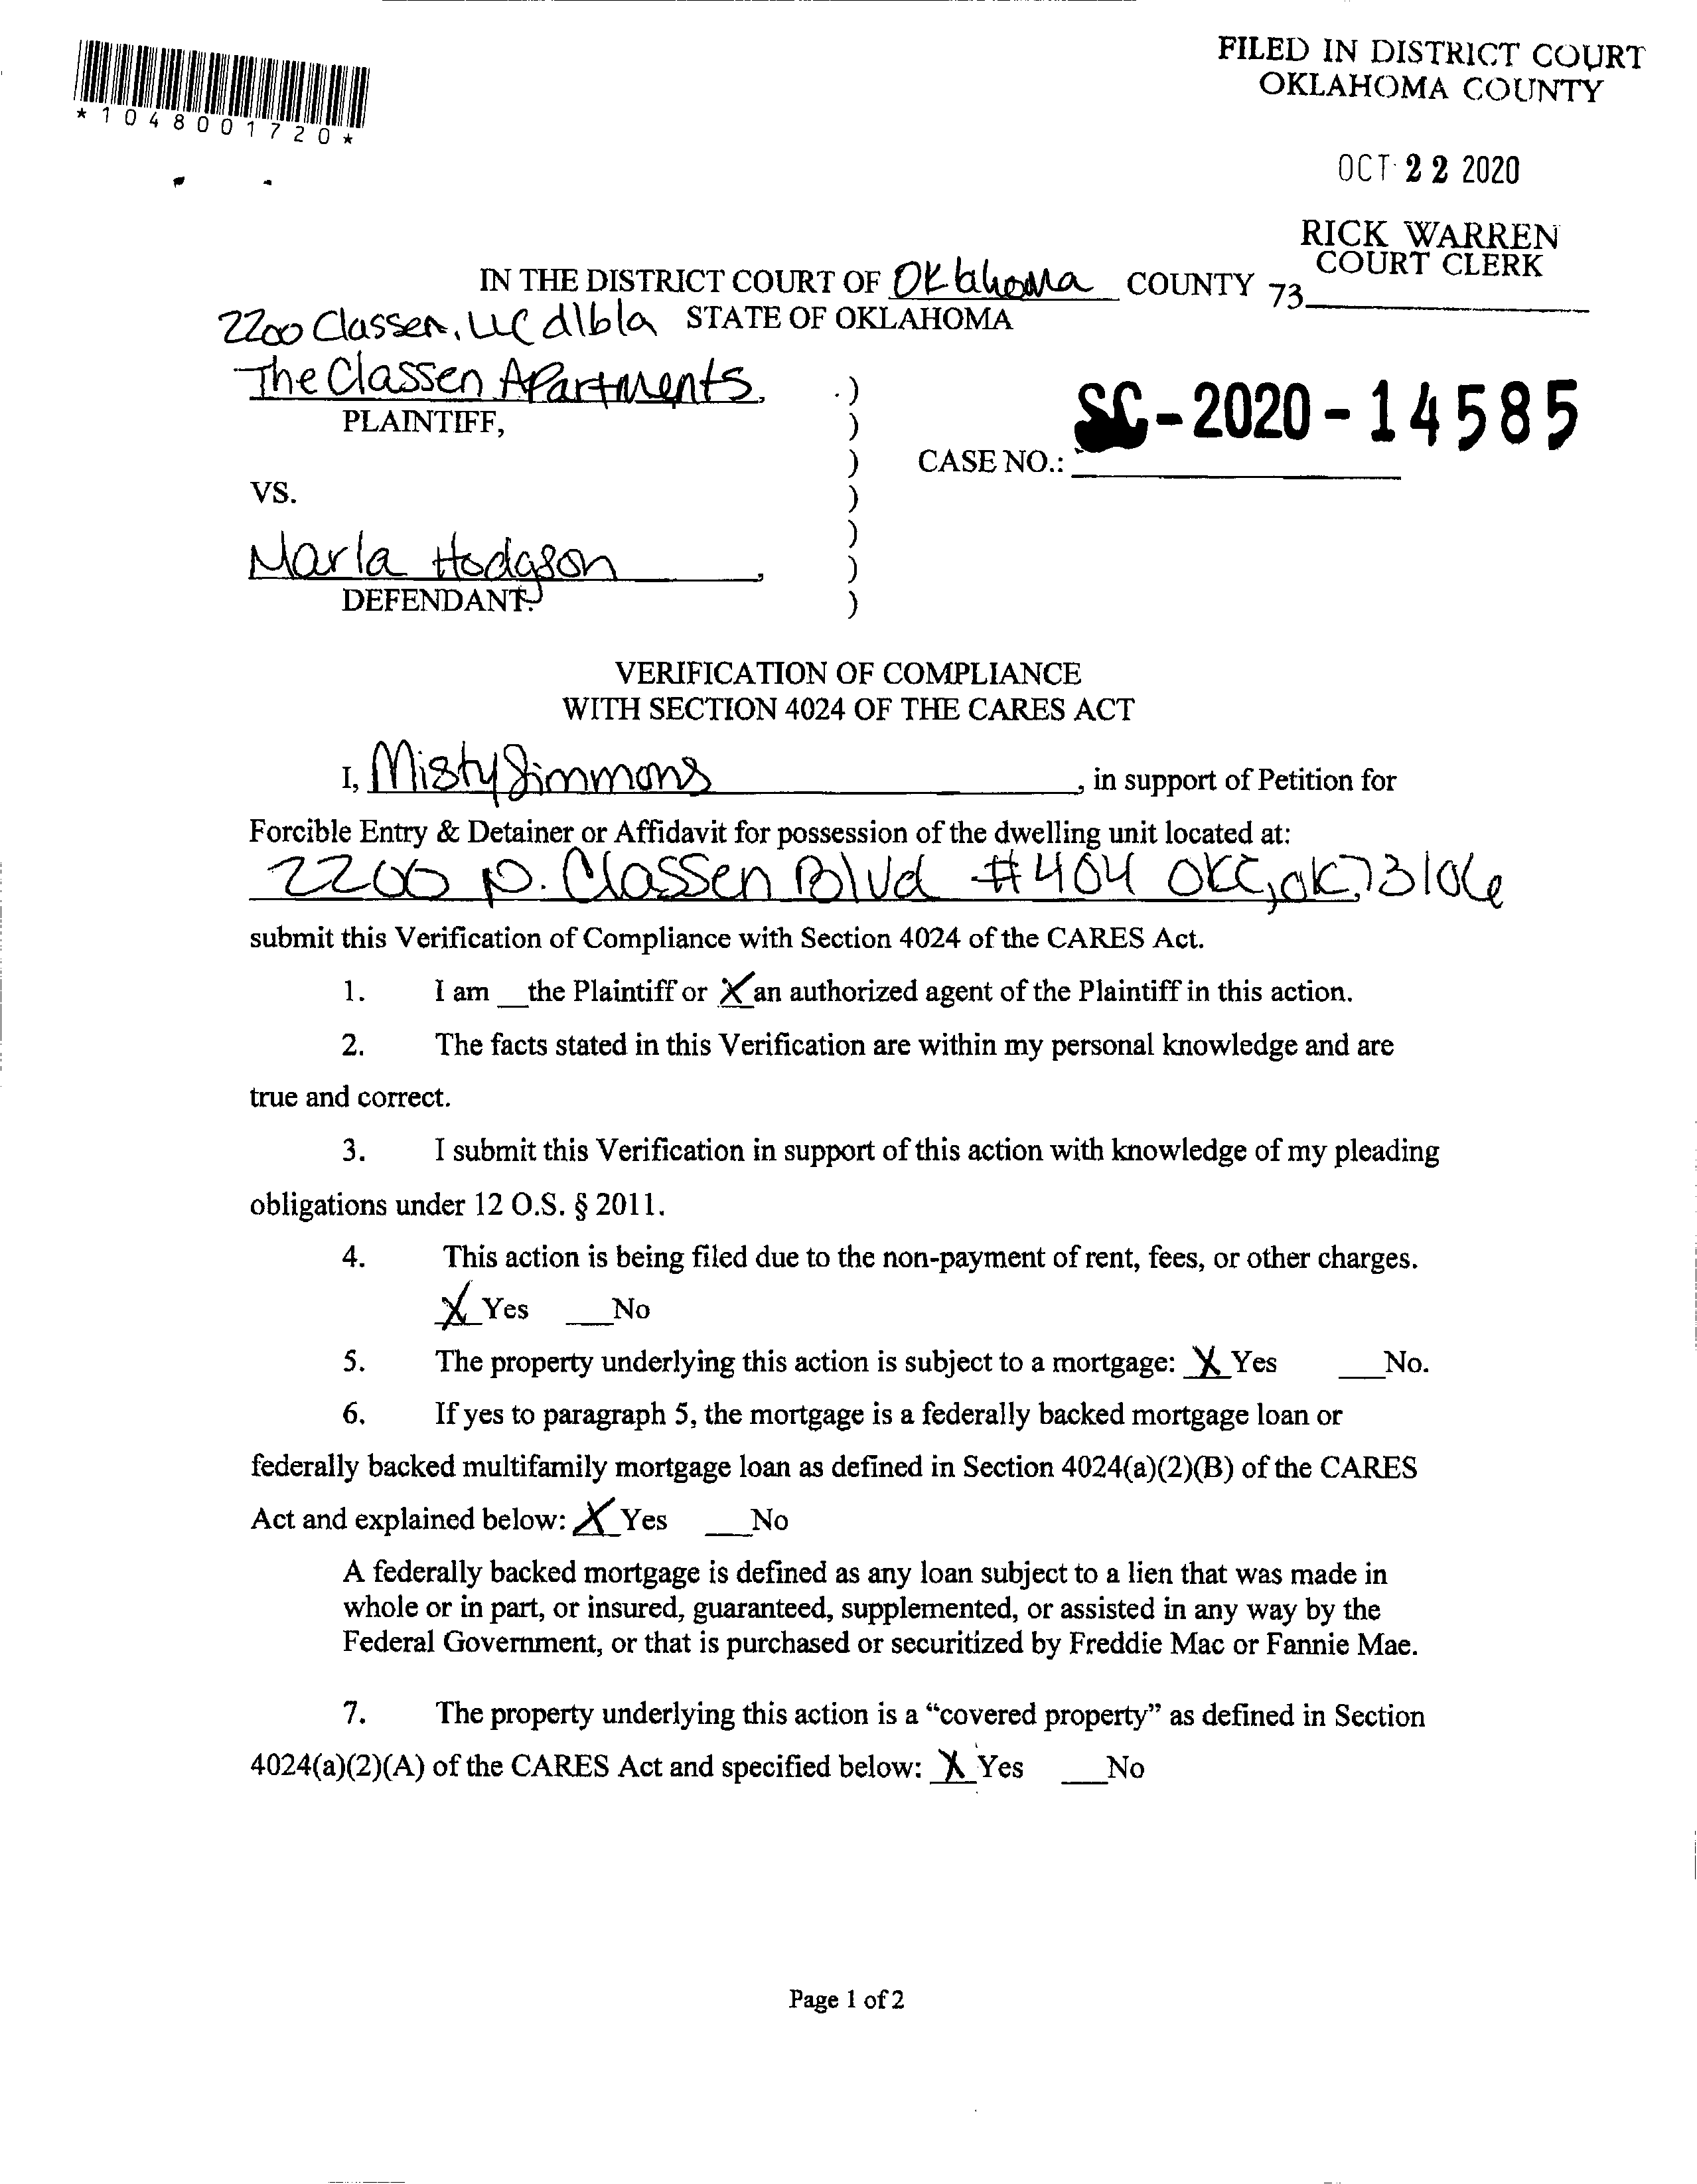 *1048001720*
FILED IN DISTRICT COURT
OKLAHOMA COUNTY
OCT 22 2020
RICK WARREN
COURT CLERK
73
IN THE DISTRICT COURT OF Oklahoma COUNTY
STATE OF OKLAHOMA
2200 Classen, LLC d/b/a
The Classen Apartments,
PLAINTIFF,
SC-2020-14585
CASE NO.:
VS.
Marla Hodgson,
DEFENDANT.
)
)
)
)
)
)
)
VERIFICATION OF COMPLIANCE
WITH SECTION 4024 OF THE CARES ACT
I, Misty Simmons, in support of Petition for
Forcible Entry & Detainer or Affidavit for possession of the dwelling unit located at:
2200 N. Classen Blvd #404 OKC, OK, 73106
submit this Verification of Compliance with Section 4024 of the CARES Act.
1. I am __the Plaintiff or X an authorized agent of the Plaintiff in this action.
2. The facts stated in this Verification are within my personal knowledge and are
true and correct.
3. I submit this Verification in support of this action with knowledge of my pleading
obligations under 12 O.S. § 2011.
4. This action is being filed due to the non-payment of rent, fees, or other charges.
X Yes ___No
5. The property underlying this action is subject to a mortgage: X Yes ___No.
6. If yes to paragraph 5, the mortgage is a federally backed mortgage loan or
federally backed multifamily mortgage loan as defined in Section 4024(a)(2)(B) of the CARES
Act and explained below: X Yes ___No
A federally backed mortgage is defined as any loan subject to a lien that was made in
whole or in part, or insured, guaranteed, supplemented, or assisted in any way by the
Federal Government, or that is purchased or securitized by Freddie Mac or Fannie Mae.
7. The property underlying this action is a “covered property” as defined in Section
4024(a)(2)(A) of the CARES Act and specified below: X Yes ___No
Page 1 of 2